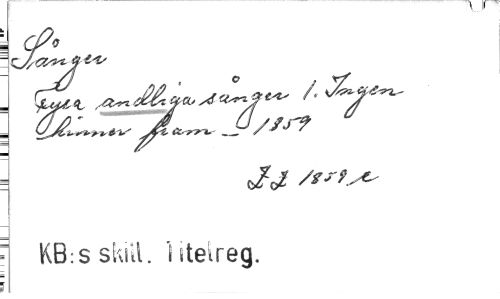 Sånger
Fyra andliga sånger 1. Ingen
hinner fram – 1859
ZZ 1859 c
KB:s skill. Titelreg.